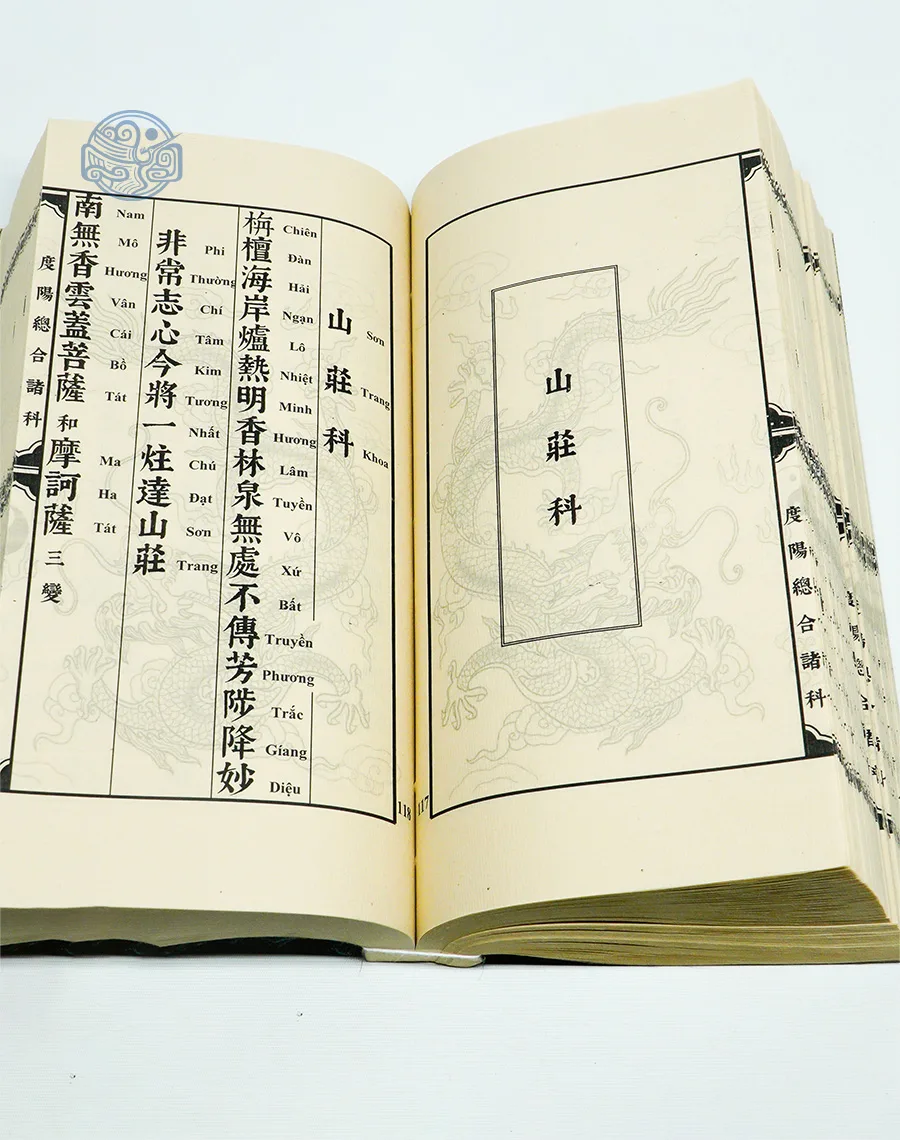 度陽總合諸科
山莊科
117
山莊科
Sơn Trang Khoa
栴檀海岸爐熱明香林泉無處不傳芳陟降妙
Chiên Đàn Hải Ngạn Lô Nhiệt Minh Hương Lâm Tuyền Vô Xứ Bất Truyền Phương Trắc Gíang Diệu
非常志心今將一炷達山莊
Phi Thường Chí Tâm Kim Tương Nhất Chú Đạt Sơn Trang
南無香雲蓋菩薩和摩訶薩三變
Nam Mô Hương Vân Cái Bồ Tát Ma Ha Tát
度陽總合諸科
118